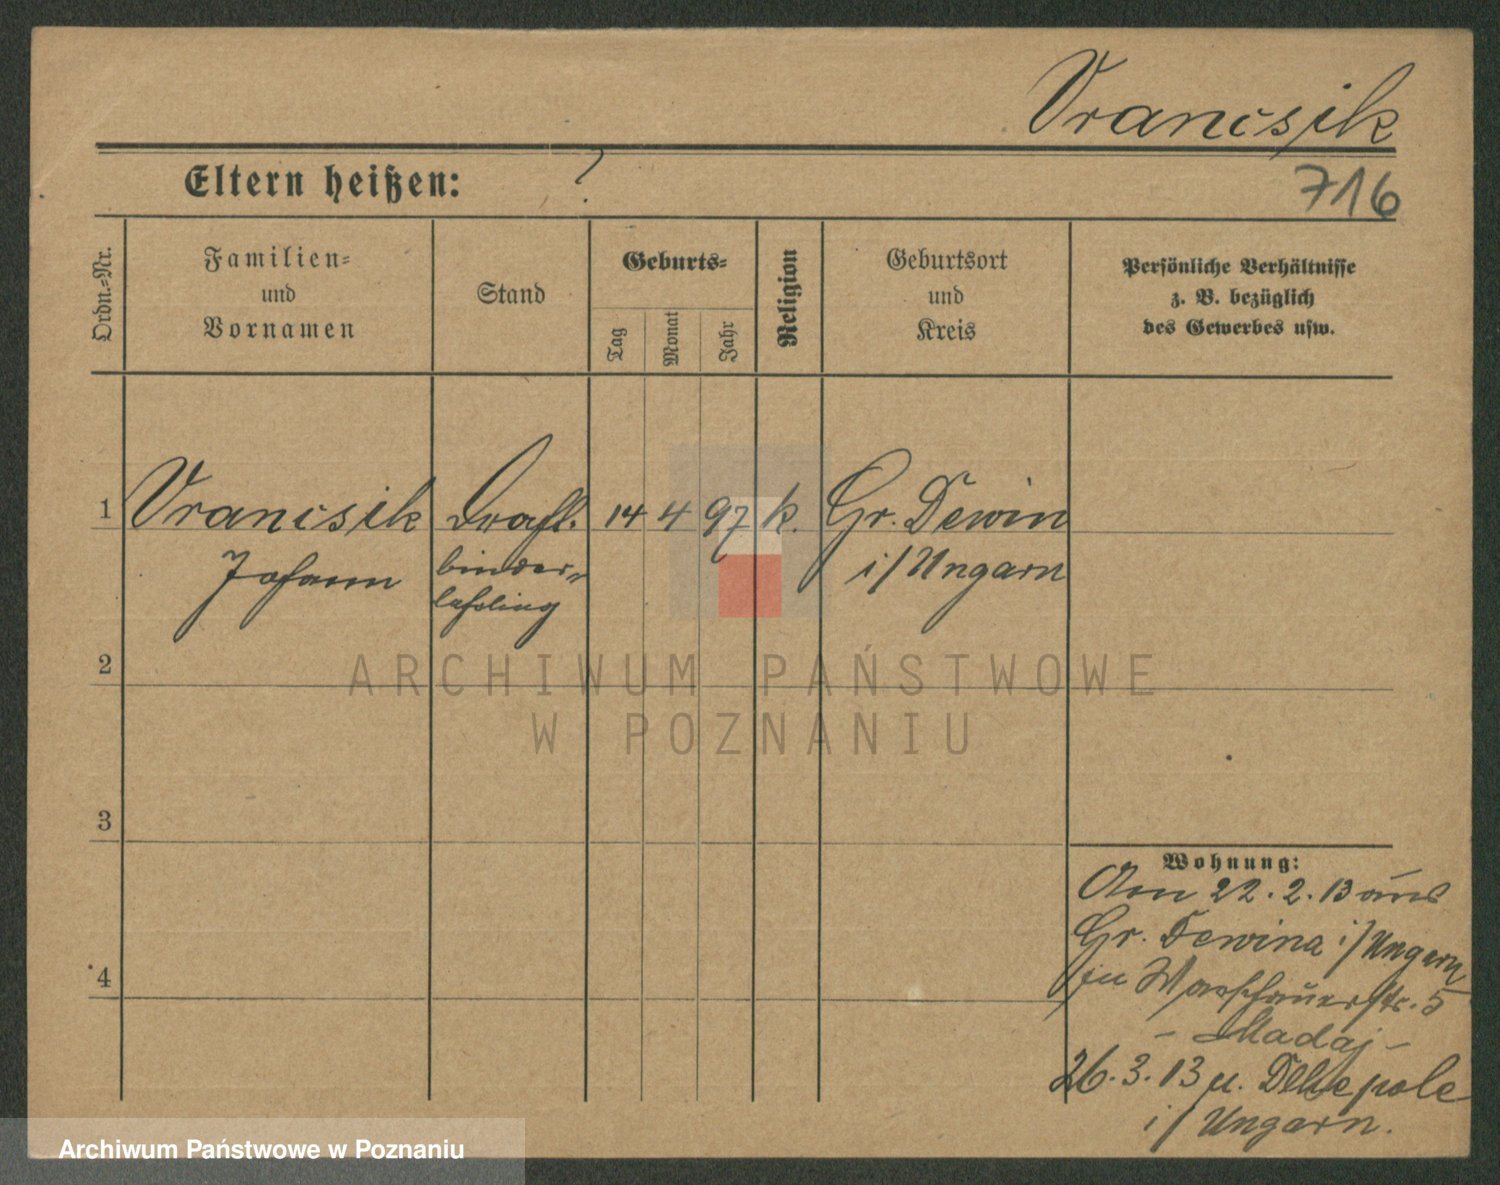 Vrancsik
Eltern heißen: ?
716
Ordn.-Nr.
Familien-
und
Vornamen
Stand
Geburts-
Tag
Monat
Jahr
Religion
Geburtsort
und
Kreis
Persönliche Verhältnisse
z. B. bezüglich
des Gewerbes usw.
1 Vrancsik Draht. 14 4 97 k. Gr. Dewin
Johann binder- i/Ungarn
lehrling
2
3
4
Wohnung:
Am 22.2.13 aus
Gr. Dewina i/Ungarn
zu Warschauerstr. 5
- Madaj -
26.3.13 n. pole
i/Ungarn.
ARCHIWUM PAŃSTWOWE
W POZNANIU
Archiwum Państwowe w Poznaniu